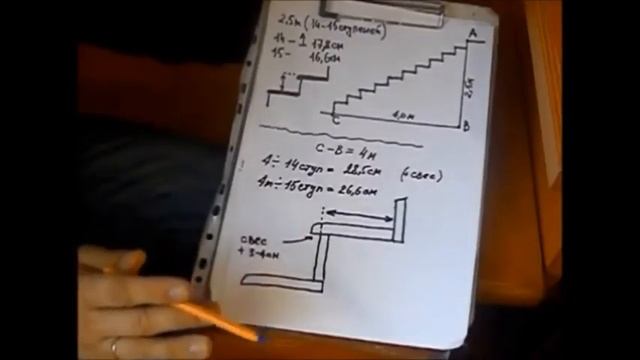 2.5м (14-15ступеней)
14- 17,8см
15- 16,6см
A
2,5м
4,0м
C
B
C-B = 4м
4 ÷ 14ступ = 28,5см (+свес)
4м ÷ 15ступ = 26,6см
свес
+ 3-4см